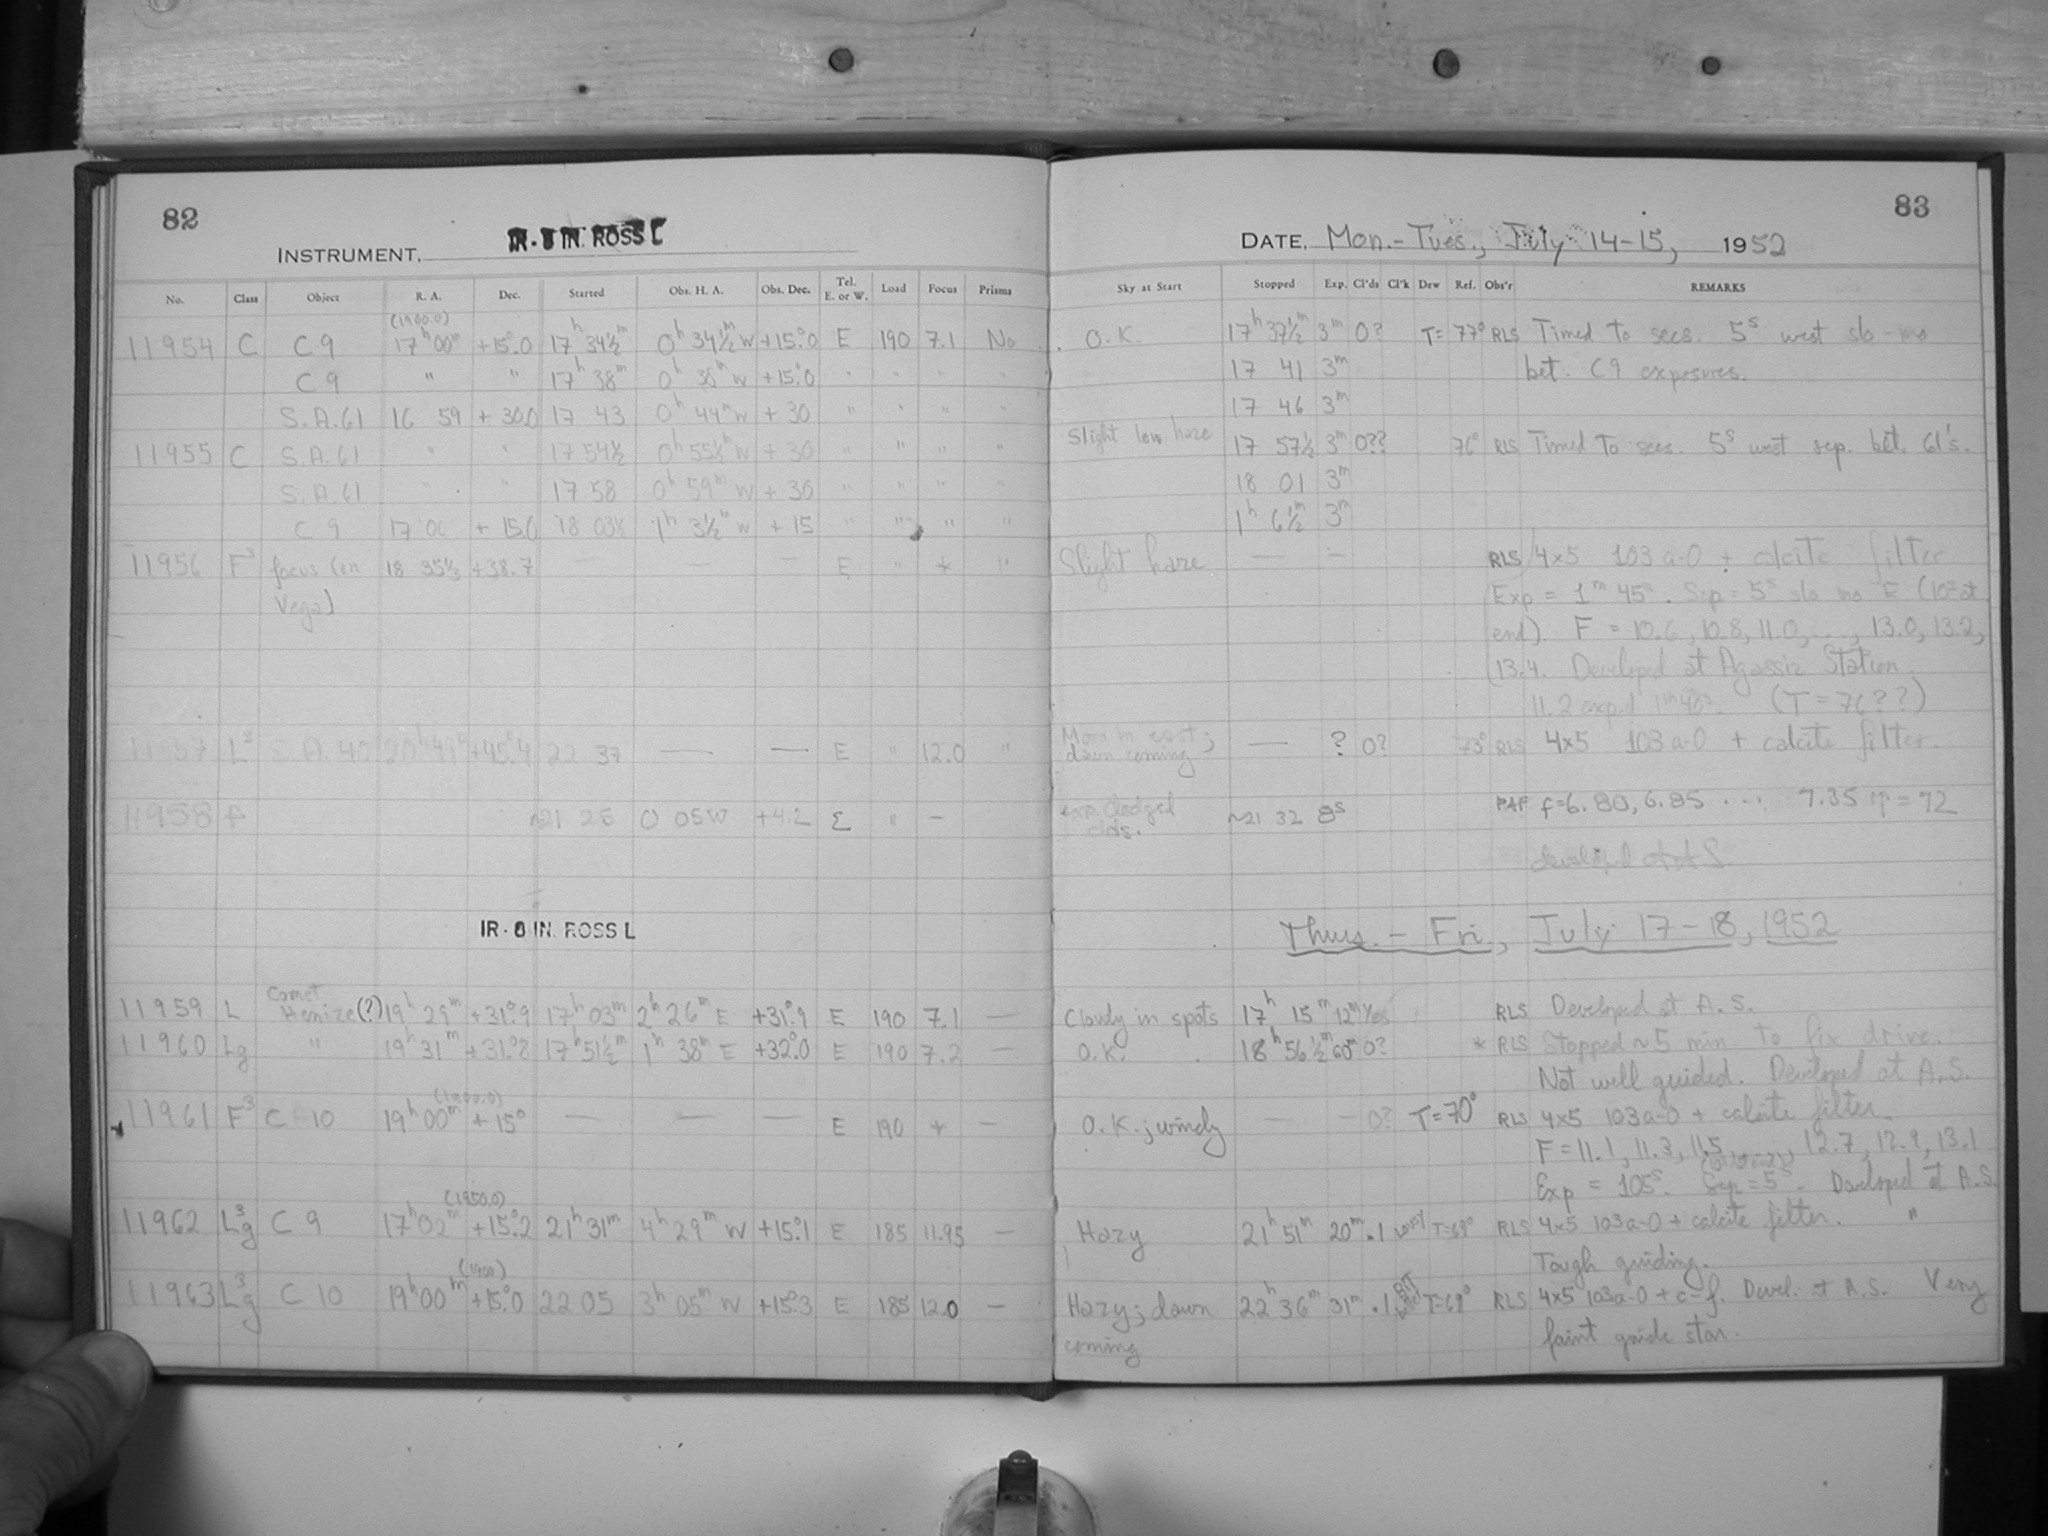 82
INSTRUMENT, IR-8 IN. ROSS L
No. Class Object R. A. Dec. Started Obs. H. A. Obs. Dec. Tel. E. or W. Load Focus Prisms
(1900.0)
11954 C C 9 17h00m +15°.0 17h 34½m 0h 34½m W +15°.0 E 190 7.1 No
C 9 " " 17h 38m 0h 38m W +15°.0 " " " "
S.A.61 16 59 +30.0 17 43 0h 44m W +30 " " " "
11955 C S.A.61 " " 17 54½ 0h 55½m W +30 " " " "
S.A.61 " " 17 58 0h 59m W +30 " " " "
C 9 17 00 +15.0 18 03½ 1h 3½m W +15 " " " "
11956 F3 focus (on 18 35⅓ +38.7 — — — E " * "
Vega)
11957 L3 S.A. 40 +45°.4 22 37 — — E " 12.0 "
11958 f ~21 26 0 05W +4.2 E " –
IR-8 IN. ROSS L
Comet
11959 L Henize(?) 19h 29m +31°.9 17h03m 2h 26m E +31°.9 E 190 7.1 —
11960 Lg " 19h31m +31°.8 17h51½m 1h 38m E +32°.0 E 190 7.2 —
(1900.0)
11961 F3 C 10 19h00m +15° — — — E 190 * —
(1950.0)
11962 L3g C 9 17h02m +15°.2 21h31m 4h 29m W +15°.1 E 185 11.95 —
(1900)
11963 L3g C 10 19h00m +15°.0 22 05 3h 05m W +15°.3 E 185 12.0 —
83
DATE, Mon.-Tues., July 14-15, 1952
Sky at Start Stopped Exp. Cl'ds Cl'k Dew Ref. Obs'r REMARKS
O.K. 17h37½m 3m 0? T= 77° RLS Timed to secs. 5s west slo-mo
17 41 3m bet. C9 exposures.
17 46 3m
Slight low haze 17 57½ 3m 0?? 76° RLS Timed to secs. 5s west sep. bet. 61's.
18 01 3m
1h 6½m 3m
Slight haze — — RLS 4×5 103a-O + calcite filter
Exp = 1m 45s. Sep = 5s slo mo E (10s at
end). F = 10.6, 10.8, 11.0, ..., 13.0, 13.2,
13.4. Developed at Agassiz Station.
11.2 exp'd (T = 76??)
Moon in east;
dawn coming — ? 0? 73° RLS 4×5 103a-O + calcite filter.
clds. ~21 32 8s f=6.80, 6.85 ... 7.35 T=72
Thurs. - Fri., July 17-18, 1952
Cloudy in spots 17h 15m 12m Yes RLS Developed at A.S.
O.K. 18h56½m 60m 0? * RLS Stopped ~5 min. to fix drive.
Not well guided. Developed at A.S.
O.K.; windy — — 0? T=70° RLS 4×5 103a-O + calcite filter.
F = 11.1, 11.3, 11.5, ..., 12.7, 12.9, 13.1
Exp = 105s. Sep = 5s. Developed at A.S.
Hazy 21h51m 20m .1 T=69° RLS 4×5 103a-O + calcite filter. "
Tough guiding.
Hazy; dawn 22h36m 31m .1 T=68° RLS 4×5 103a-O + c-f. Devel. at A.S. Very
coming faint guide star.